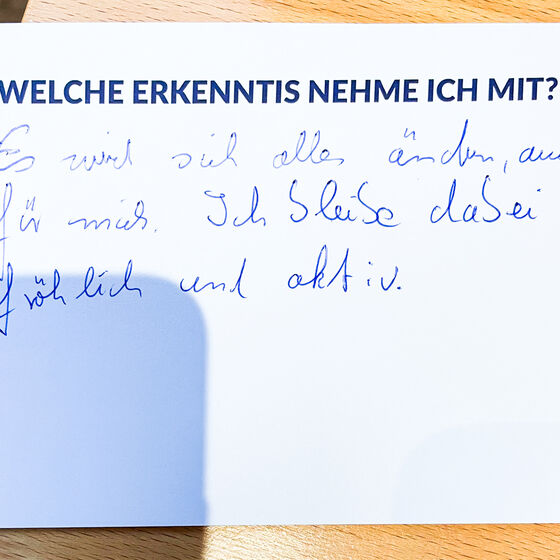 WELCHE ERKENNTIS NEHME ICH MIT?
Es wird sich alles ändern, au
für mich. Ich bleibe dabei
fröhlich und aktiv.